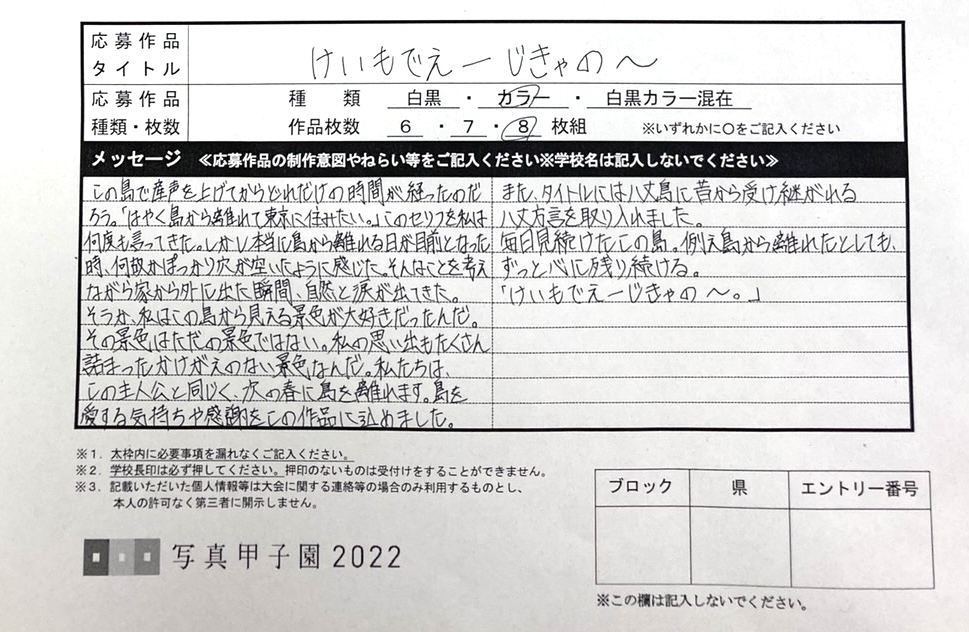 応募作品
タイトル
けいもでえーじきゃの〜
応募作品
種類・枚数
種類 白黒 ・ カラー ・ 白黒カラー混在
作品枚数 6 ・ 7 ・ 8 枚組 ※いずれかに○をご記入ください
メッセージ ≪応募作品の制作意図やねらい等をご記入ください※学校名は記入しないでください≫
この島で産声を上げてからどれだけの時間が経ったのだ
ろう。「はやく島から離れて東京に住みたい。」このセリフを私は
何度も言ってきた。しかし本当に島から離れる日が目前となった
時、何故かぽっかり穴が空いたように感じた。そんなことを考え
ながら家から外に出た瞬間、自然と涙が出てきた。
そうか、私はこの島から見える景色が大好きだったんだ。
その景色はただの景色ではない。私の思い出もたくさん
詰まったかけがえのない景色なんだ。私たちは、
この主人公と同じく、次の春に島を離れます。島を
愛する気持ちや感謝をこの作品に込めました。
また、タイトルには八丈島に昔から受け継がれる
八丈方言を取り入れました。
毎日見続けたこの島。例え島から離れたとしても、
ずっと心に残り続ける。
「けいもでえーじきゃの〜。」
※1. 太枠内に必要事項を漏れなくご記入ください。
※2. 学校長印は必ず押してください。押印のないものは受付けをすることができません。
※3. 記載いただいた個人情報等は大会に関する連絡等の場合のみ利用するものとし、
本人の許可なく第三者に開示しません。
写真甲子園2022
ブロック 県 エントリー番号
※この欄は記入しないでください。